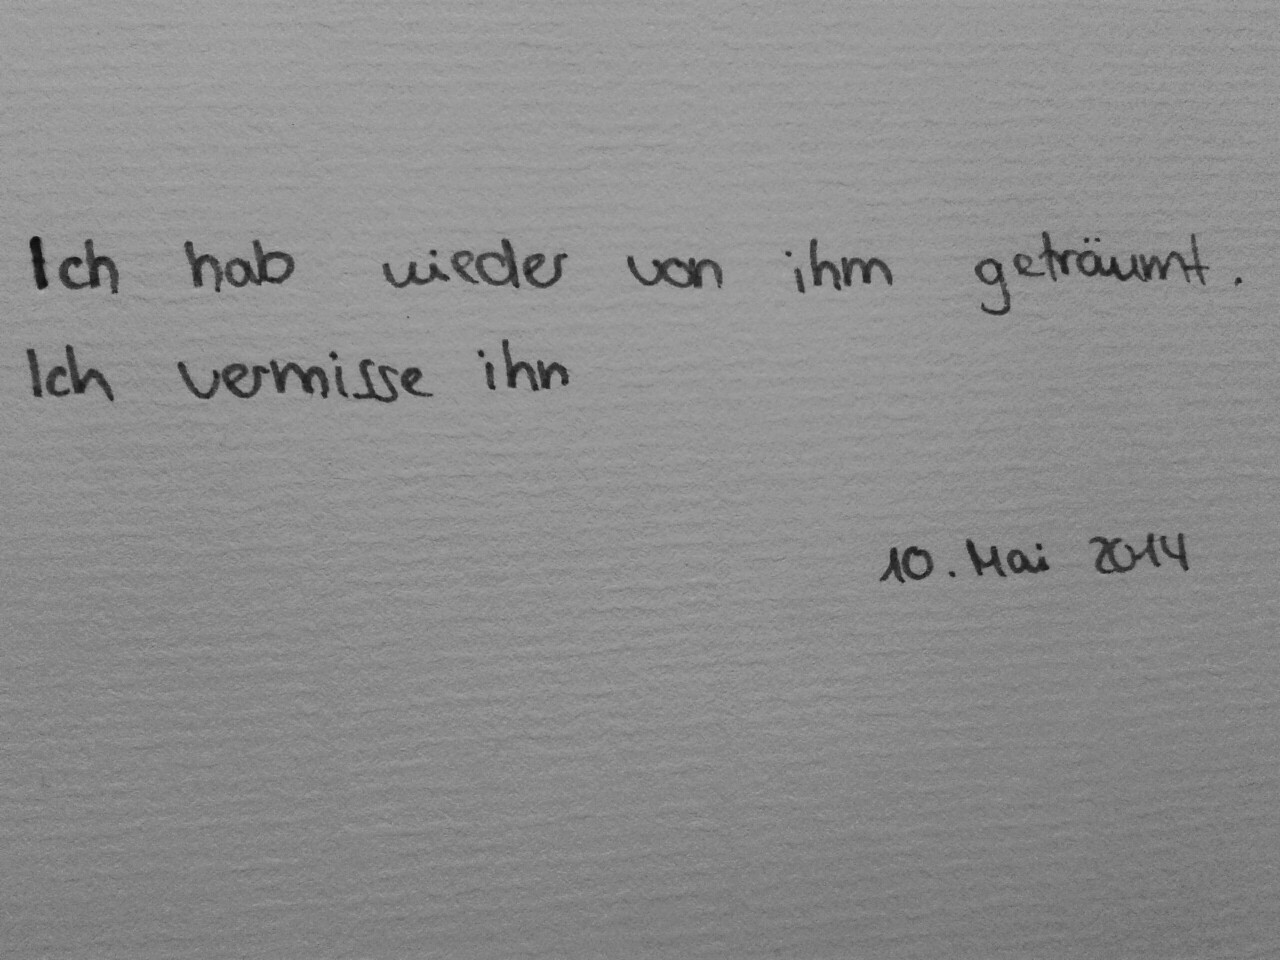 Ich hab wieder von ihm geträumt.
Ich vermisse ihn
10. Mai 2014